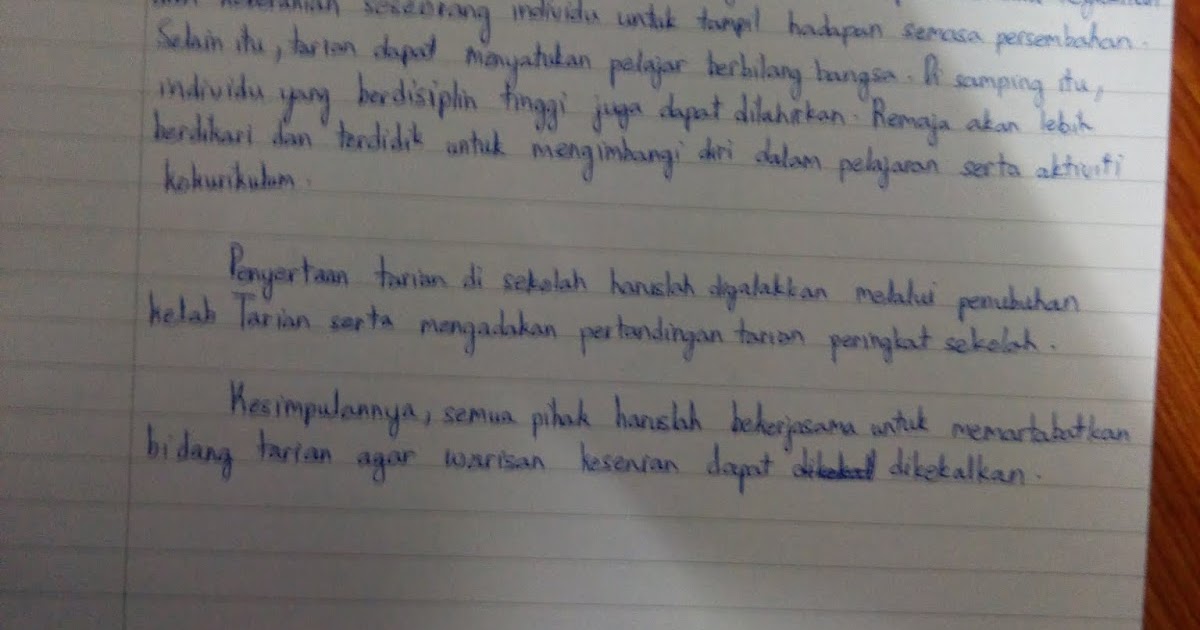 seseorang individu untuk tampil hadapan semasa persembahan.
Selain itu, tarian dapat menyatukan pelajar berbilang bangsa. Di samping itu,
individu yang berdisiplin tinggi juga dapat dilahirkan. Remaja akan lebih
berdikari dan terdidik untuk mengimbangi diri dalam pelajaran serta aktiviti
kokurikulum.
Penyertaan tarian di sekolah haruslah digalakkan melalui penubuhan
kelab Tarian serta mengadakan pertandingan tarian peringkat sekolah.
Kesimpulannya, semua pihak haruslah bekerjasama untuk memartabatkan
bidang tarian agar warisan kesenian dapat dikekalkan.